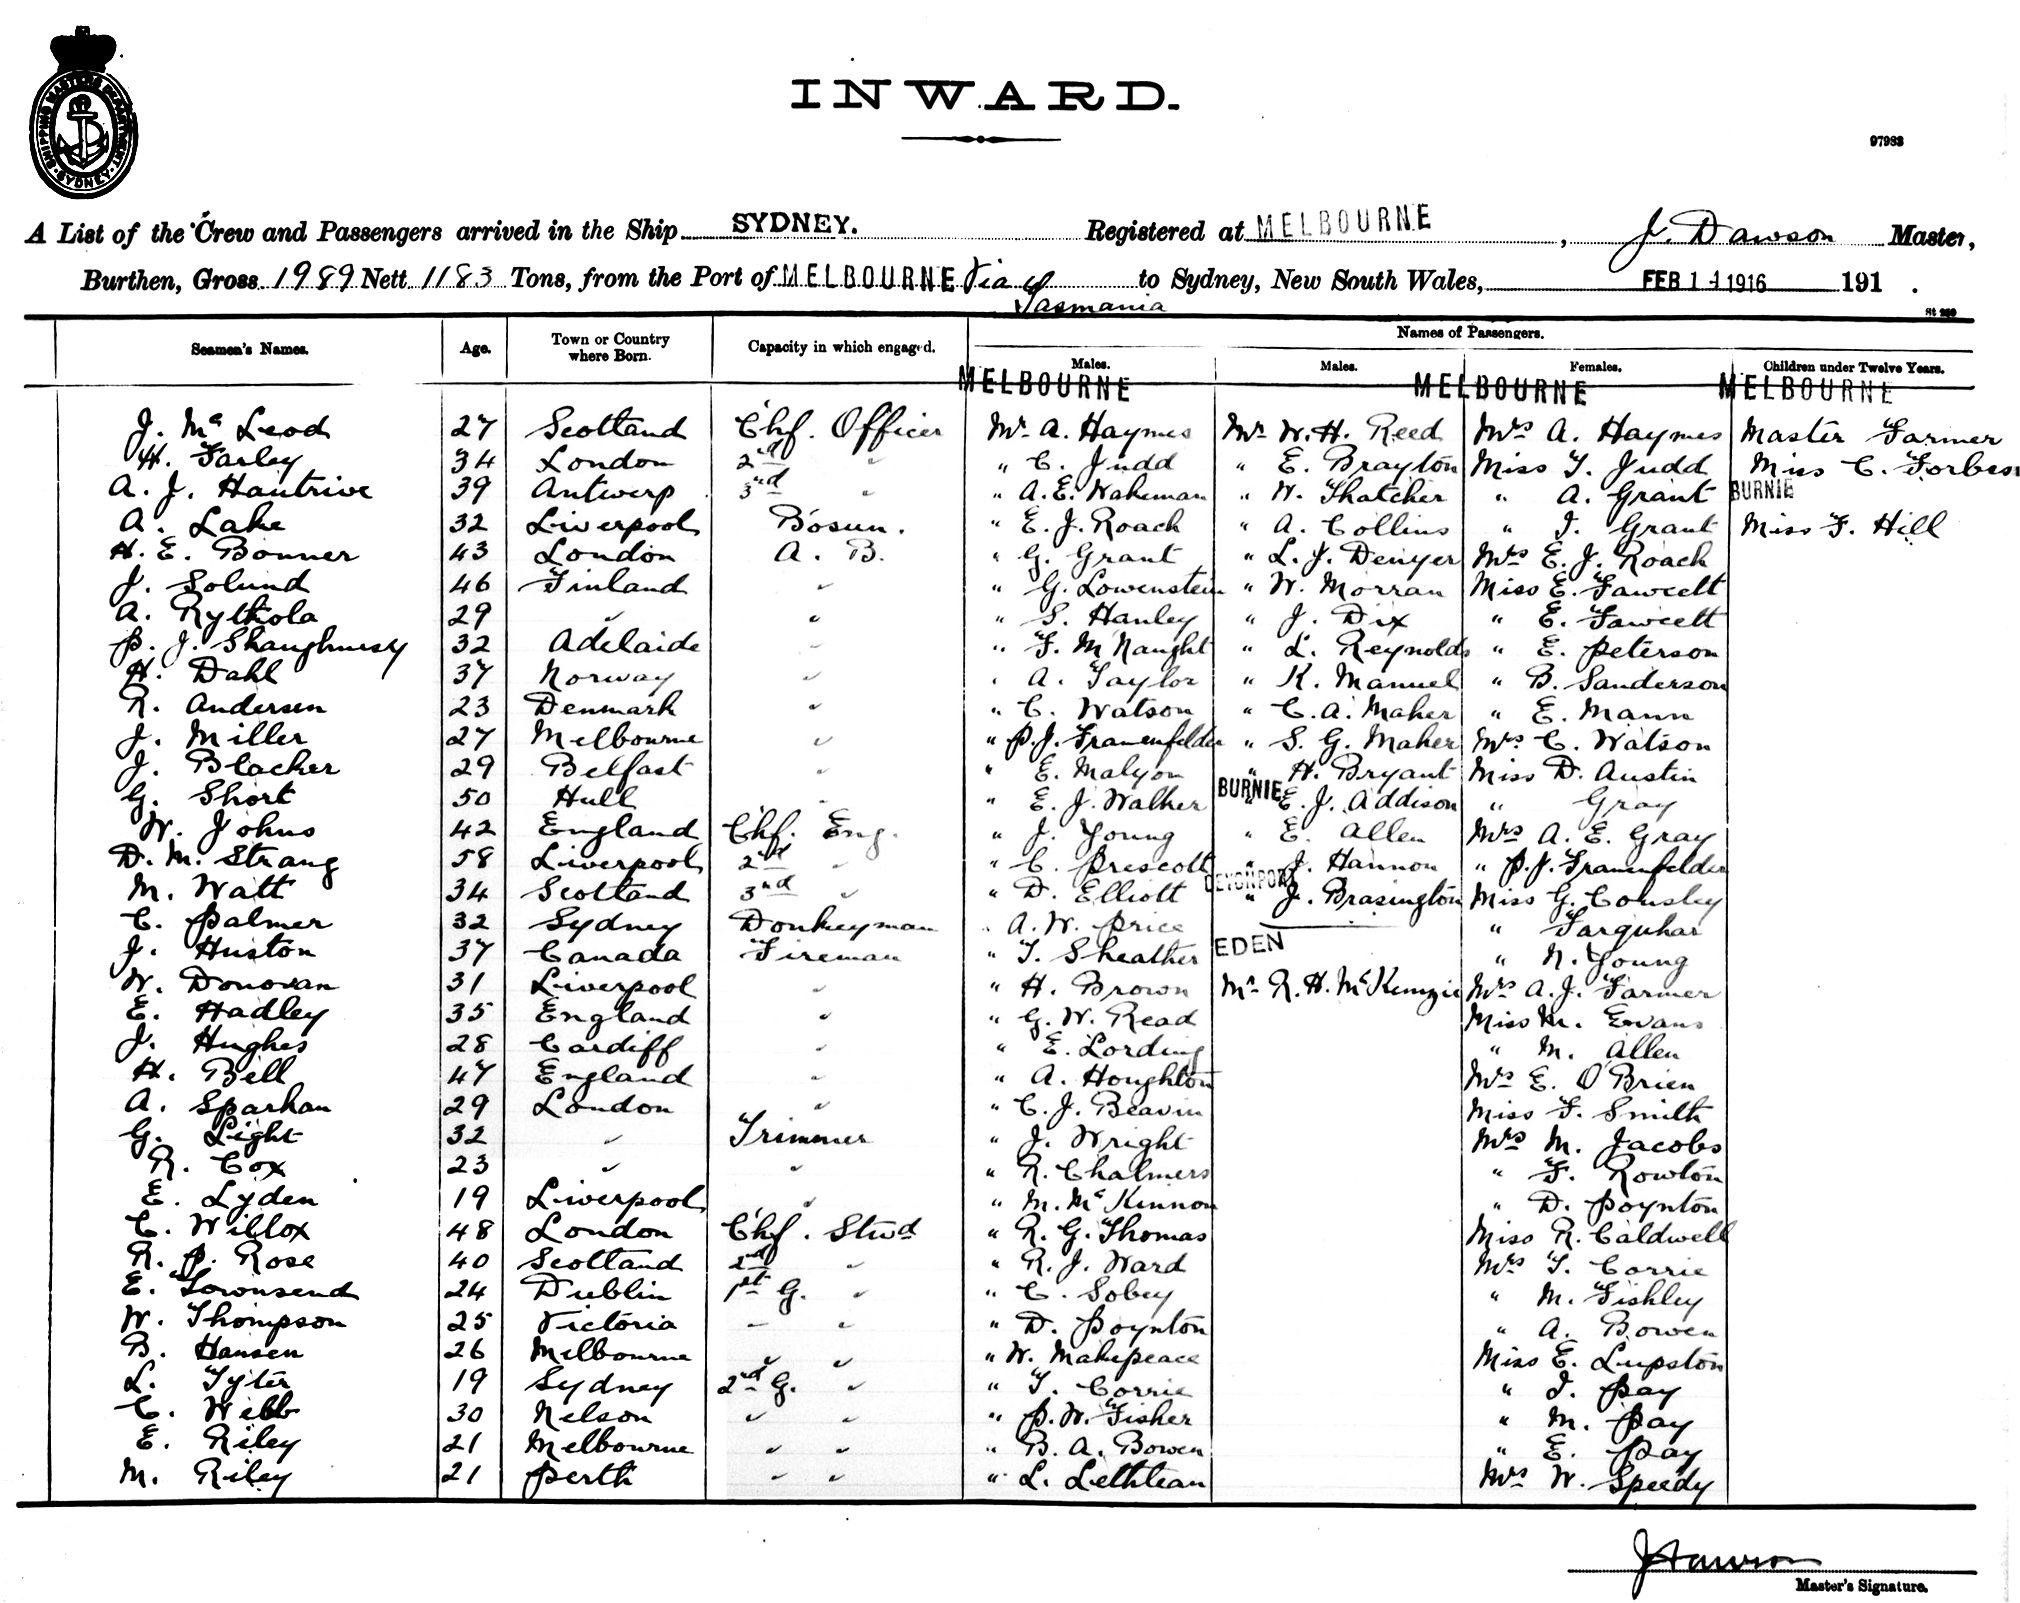 SHIPPING MASTERS DEPARTMENT. SYDNEY.
INWARD.
97983
A List of the Crew and Passengers arrived in the Ship SYDNEY. Registered at MELBOURNE, J. Dawson Master,
Burthen, Gross 1989 Nett 1183 Tons, from the Port of MELBOURNE Via to Sydney, New South Wales, FEB 14 1916 191 .
Tasmania
Seamen's Names. Age. Town or Country where Born. Capacity in which engaged. Names of Passengers.
Males. Males. Females. Children under Twelve Years.
MELBOURNE MELBOURNE MELBOURNE
J. Mc Leod 27 Scotland Chf. Officer Mr A. Haymes Mr W. H. Reed Mrs A. Haymes Master Farmer
H. Farley 34 London 2nd " " C. Judd " E. Brayton Miss T. Judd Miss C. Forbes
A. J. Hautrive 39 Antwerp 3rd " " A. E. Wakeman " W. Thatcher " A. Grant BURNIE
A. Lake 32 Liverpool Bosun. " E. J. Roach " A. Collins " I. Grant Miss F. Hill
H. E. Bonner 43 London A. B. " G. Grant " L. J. Denyer Mrs E. J. Roach
J. Solund 46 Finland " " G. Lowenstein " W. Morran Miss E. Fawcett
A. Rytkola 29 " " " S. Hanley " J. Dix " E. Fawcett
P. J. Shaughnesy 32 Adelaide " " F. M Naught " L. Reynolds " E. Peterson
H. Dahl 37 Norway " " A. Taylor " K. Manuel " B. Sanderson
R. Andersen 23 Denmark " " C. Watson " C. A. Maher " E. Mann
J. Miller 27 Melbourne " " P. J. Framenfelder " S. G. Maher Mrs C. Watson
J. Blacker 29 Belfast " " E. Malyon " H. Bryant Miss D. Austin
G. Short 50 Hull " " E. J. Walker BURNIE " E. J. Addison " Gray
W. Johns 42 England Chf. Eng. " J. Young " E. Allen Mrs A. E. Gray
D. M. Strang 58 Liverpool 2nd " " C. Prescott " J. Hannon " P. J. Framenfelder
M. Watt 34 Scotland 3rd " " D. Elliott DEVONPORT " J. Brasington Miss G. Cousley
C. Palmer 32 Sydney Donkeyman " A. W. Price " Farquhar
J. Huston 37 Canada Fireman " T. Sheather EDEN " N. Young
W. Donovan 31 Liverpool " " H. Brown Mr R. H. McKenzie Mrs A. J. Farmer
E. Hadley 35 England " " G. W. Read Miss M. Evans
J. Hughes 28 Cardiff " " E. Lording " M. Allen
H. Bell 47 England " " A. Houghton Mrs E. O'Brien
A. Sparhan 29 London " " C. J. Beavin Miss F. Smith
G. Light 32 " Trimmer " J. Wright Mrs M. Jacobs
R. Cox 23 " " " R. Chalmers " F. Rowton
E. Lyden 19 Liverpool " " M. McKinnon " D. Poynton
C. Willox 48 London Chf. Stwd " R. G. Thomas Miss R. Caldwell
R. P. Rose 40 Scotland 2nd " " R. J. Ward Mrs T. Corrie
E. Townsend 24 Dublin 1st G. " " C. Sobey " M. Fishley
W. Thompson 25 Victoria " " " D. Poynton " A. Bowen
B. Hansen 26 Melbourne " " " W. Makepeace Miss E. Lupston
L. Tyter 19 Sydney 2nd G. " " T. Corrie " I. Pay
C. Webb 30 Nelson " " " P. W. Fisher " M. Pay
E. Riley 21 Melbourne " " " B. A. Bowen " E. Pay
M. Riley 21 Perth " " " L. Lethlean Mrs W. Speedy
J Dawson
Master's Signature.